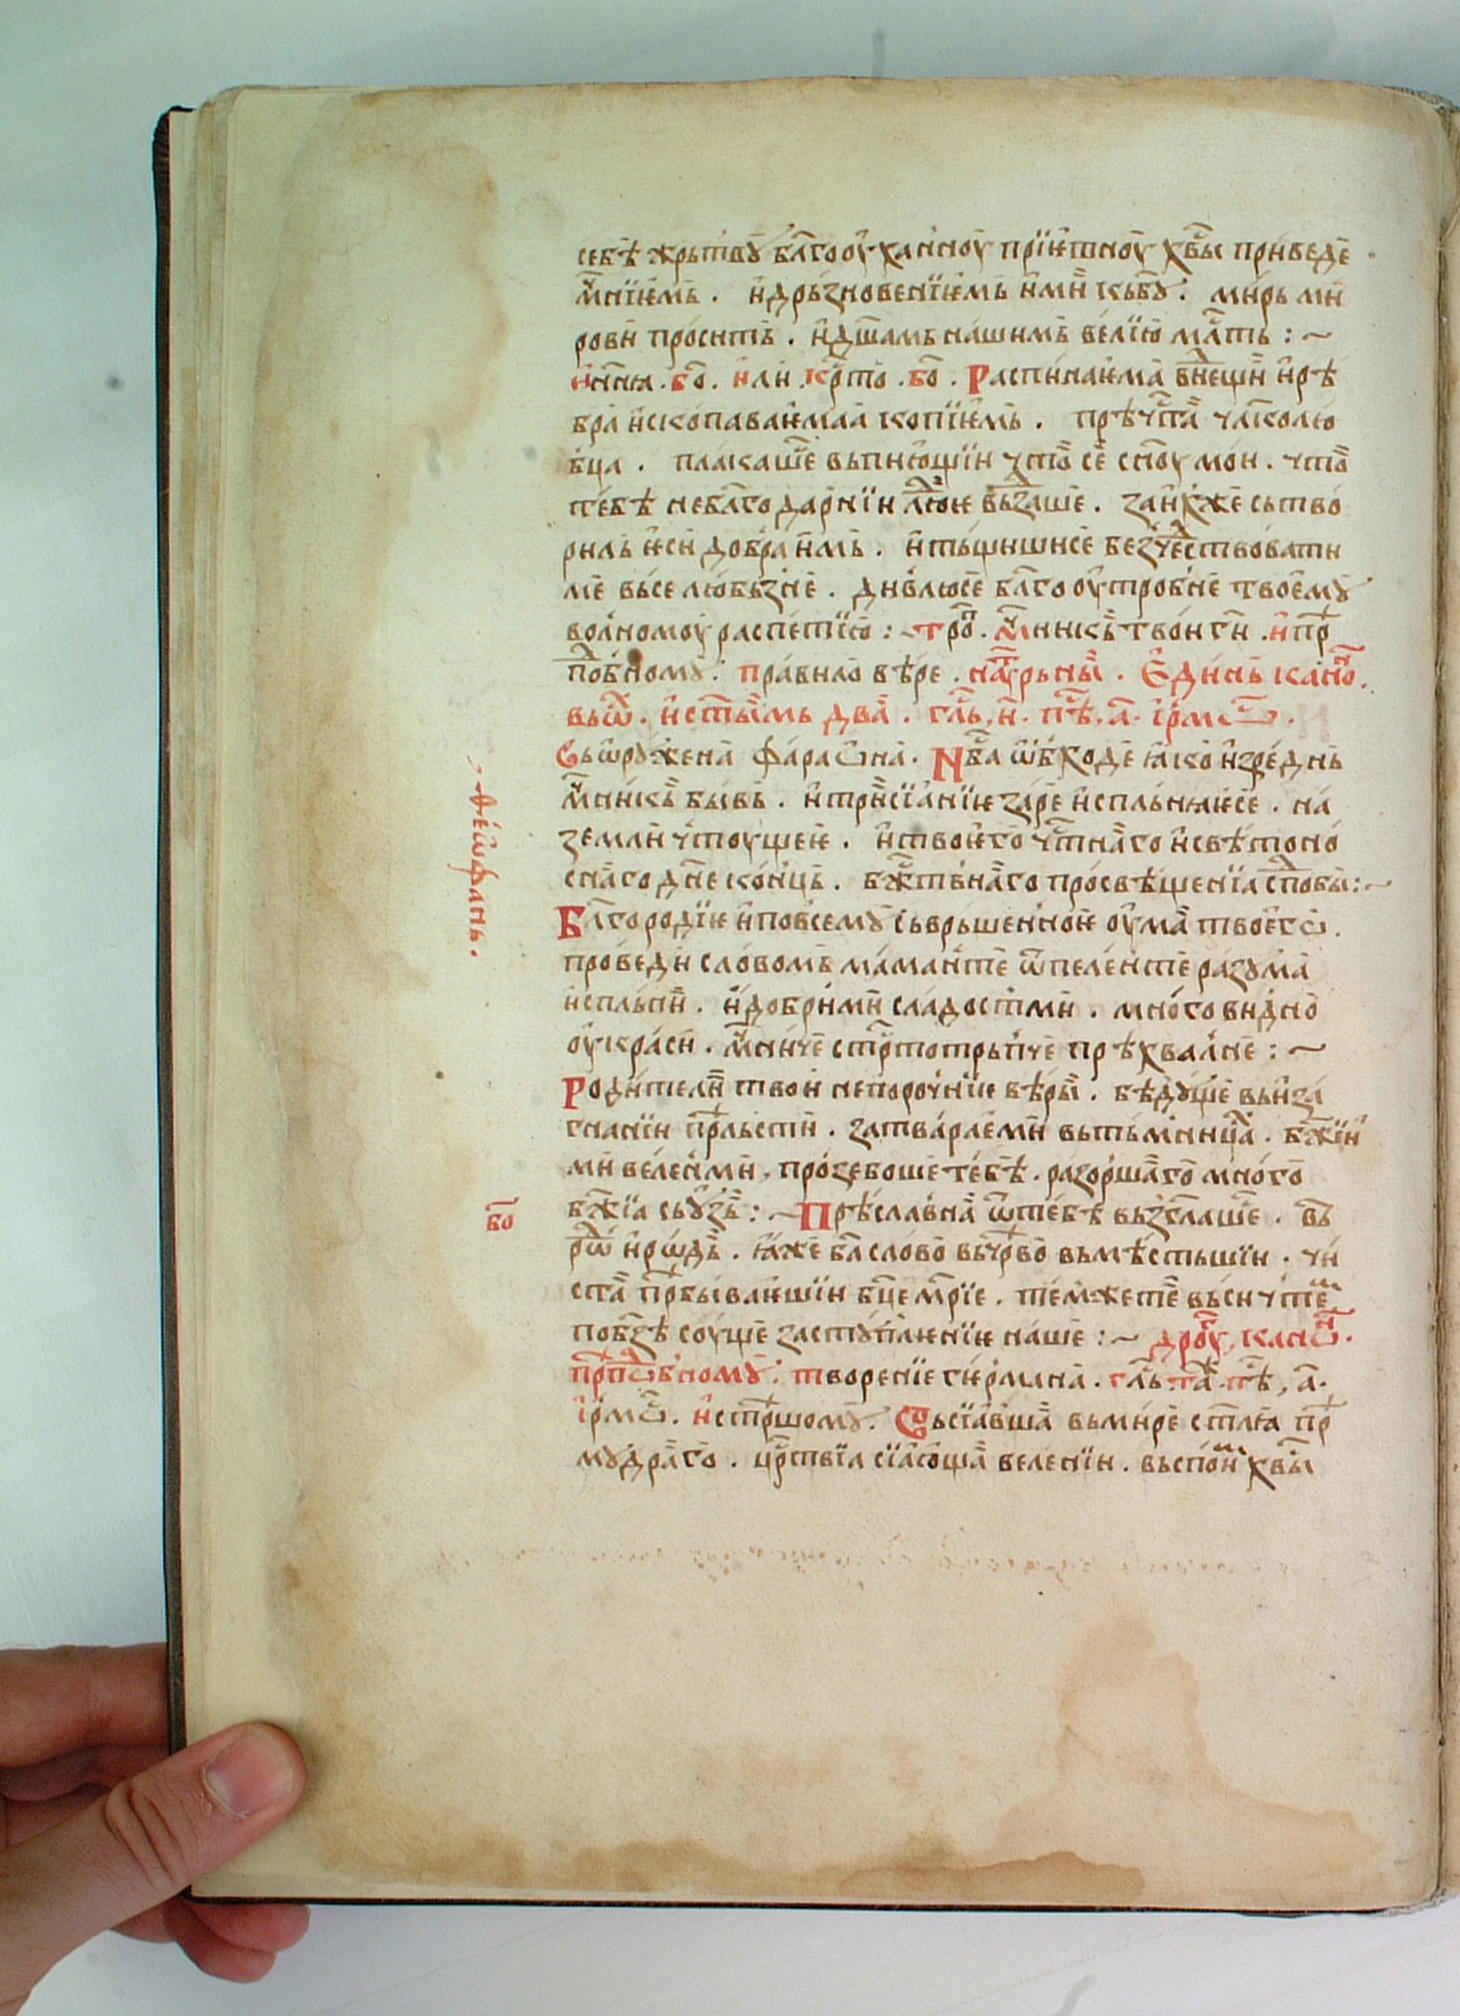 себѣ жрьтвꙋ бл҃гооуханноу прїѥтноу хв҃ы приведе
мч҃нїѥмь. и дрьзновенїѥмь имы кь бꙋ҃. мирь ми
рови просить. и дш҃амь нашимь велїю мл҃ть :~
и нн҃ꙗ. бо҃. или крⷭ҇то бо҃. Распинаѥма вⸯнѥгⷣа и рѣ
бра ископаваѥмаа копїѥмь. прѣчⷭ҇таа чл҃колю
бца. плакашесе вьпиющїи что се сн҃оу мои. что
тебѣ неблⷢ҇одарнїи людїе вьздаше. заихже сьтво
риль ѥси добра имь. и тьщишисе безчедствовати
ме вьселюбьзне. дивлюсе бл҃гооутробне твоемꙋ
волномоу распетїю :~ троⷫ҇. мч҃никь твои г҃и. и прⷣ
пⷣобномꙋ. правило вѣре. на оутрьны. Единь кано
вьѿ. и ст҃ымь два. гл҃ь, и. пѣⷭ҇, а. їрмоⷭ҇.
Сьѡрꙋжена фараѡна. Нбⷭ҇а ѡбходе ꙗко изредⸯнь
мч҃никь бывь. и трисїанїѥ заре испльнꙗѥсе. на
земли чтоущеѥ. и твоѥго чⷭ҇тнаго и свѣтоно
снаго дн҃е конць. бжⷭ҇твⸯнаго просвѣщенїа спⷣоби :~
Бл҃городїѥ и повсемꙋ сьврьшенноѥ оума твоего.
проведи словомь мамаⸯнте ѿ пеленте разꙋма
испльни. и добрими сладостми. многовидно
оукраси. мч҃ниче стрⷭ҇тотрьпче прѣхвалне :~
Родителы твои непорочнїѥ вѣры. бѣдꙋще вь иза
гнанїи прⷣльсти. затвараеми вь тьмⸯници. бж҃їи
ми веленми, прозебоше тебѣ. разоршаго много
бж҃їа сьꙋзь :~ Прѣславнаа ѿ тебѣ вьзгл҃аше. вь
роⷣ и родь. ꙗже бл҃а слово вь чрⷣво вьмѣстьшїи. чи
стаа прⷣбываѥшїи бц҃е мр҃їе. темⸯже те вьси чте
по бз҃ѣ соуще застꙋпⸯлѥнїѥ наше :~ дроугы, каноⷩ҇.
прⷣпⷣобномꙋ. творенїе гѥрмана. гл҃ь тⷤа. пѣⷭ҇, а.
їрмоⷭ҇. и стрⷣшомꙋ. Вьсїавша вь мире ст҃лꙗ прⷣ
мꙋдраго. црⷭ҇твїа сїающа веленїи. вьспоимь хв҃ы
ѳеѡфань.
бо҃